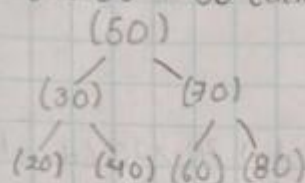 (50)
(30) (70)
(20) (40) (60) (80)